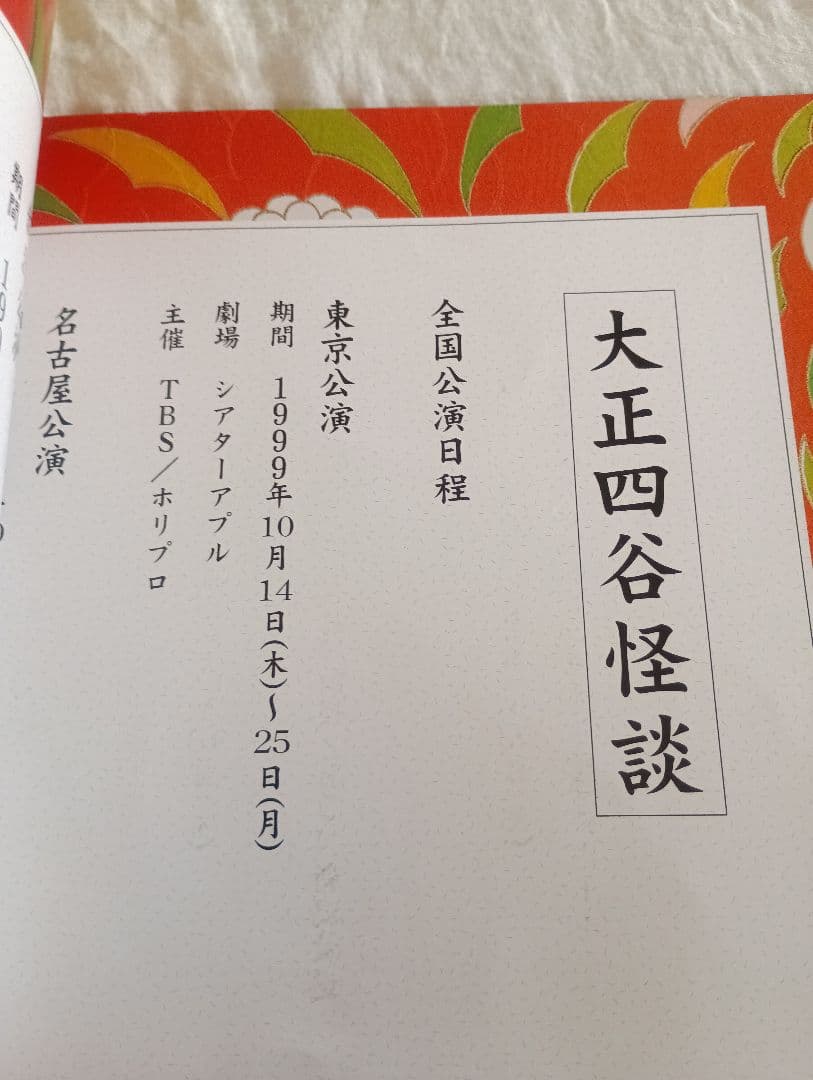 大正四谷怪談
全国公演日程
東京公演
期間 1999年10月14日(木)～25日(月)
劇場 シアターアプル
主催 TBS／ホリプロ
名古屋公演
期間